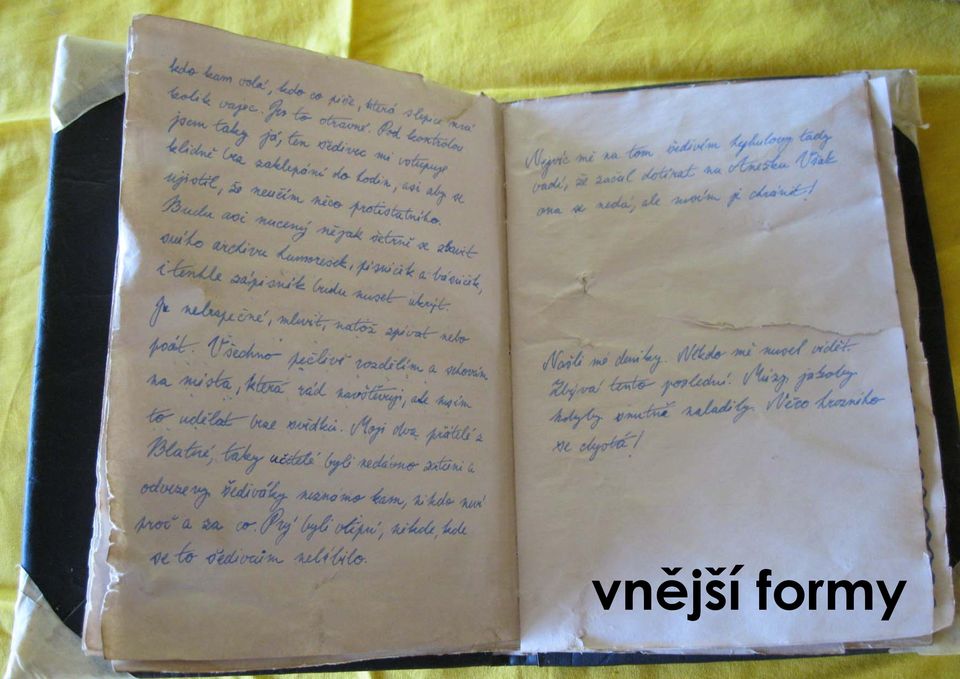 kdo kam volá, kdo co píše, která slepice má
kolik vajec. Je to otravné. Pod kontrolou
jsem taky já, ten šedivec mi vstupuje
klidně bez zaklepání do hodin, asi aby se
ujistil, že neučím něco protistátního.
Budu asi nucený nějak šetrně se zbavit
svého archivu humoresek, písniček a básniček,
i tenhle zápisník budu muset ukrýt.
Je nebezpečné, mluvit, natož zpívat nebo
psát. Všechno pečlivě rozdělím a schovám
na místa, která rád navštěvuji, ale musím
to udělat beze svědků. Moji dva přátelé z
Blatné, taky učitelé byli nedávno zatčeni a
odvezeny šediváky neznámo kam, nikdo neví
proč a za co. Prý byli vtipní, někde, kde
se to šedivcům nelíbilo.
Nejvíc mě na tom šedivém tady
vadí, že začal dotírat na Anežku. Však
ona se nedá, ale musím ji chránit!
Našli mé deníky. Někdo mě musel vidět.
Zbývá tento poslední. Múzy jakoby
kdyby smutně naladily. Něco hrozného
se chystá!
vnější formy